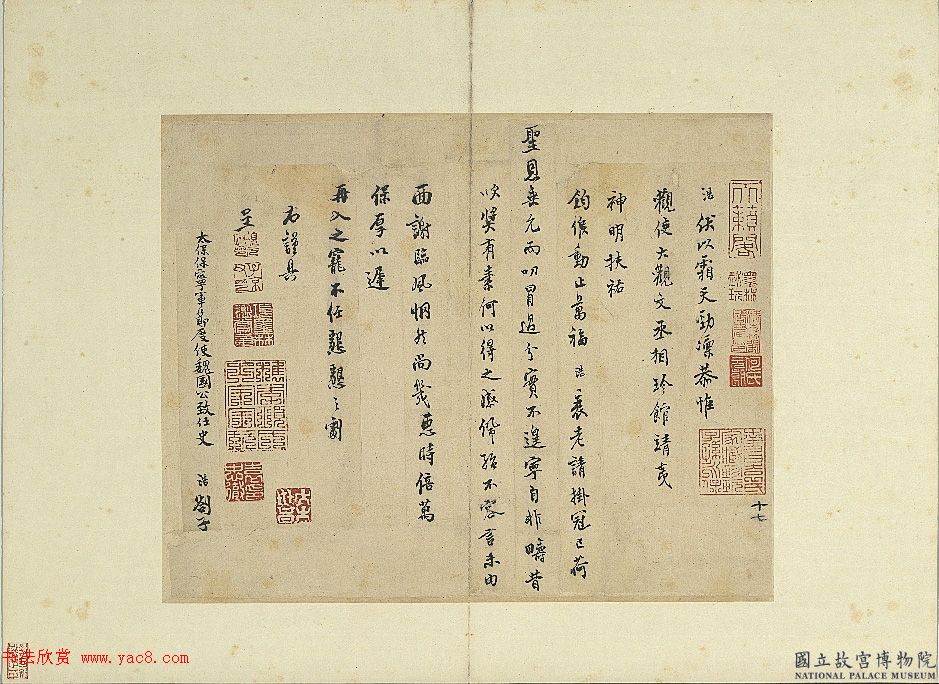 浩伏以霜天勁凜恭惟
觀使大觀文丞相珍館靖夷
神明扶祐
鈞候動止萬福浩衰老請掛冠已荷
聖恩垂允而叨冒過分實不遑寧自非疇昔
吹獎有素何以得之感佩殆不容言未由
西謝臨風惘然尚幾惠時倍萬
保厚以遲
再入之寵不任懇懇之劄
右謹具
呈
太保保寧軍節度使魏國公致仕史 浩 劄子
十七
書法欣赏 www.yac8.com
國立故宮博物院
NATIONAL PALACE MUSEUM